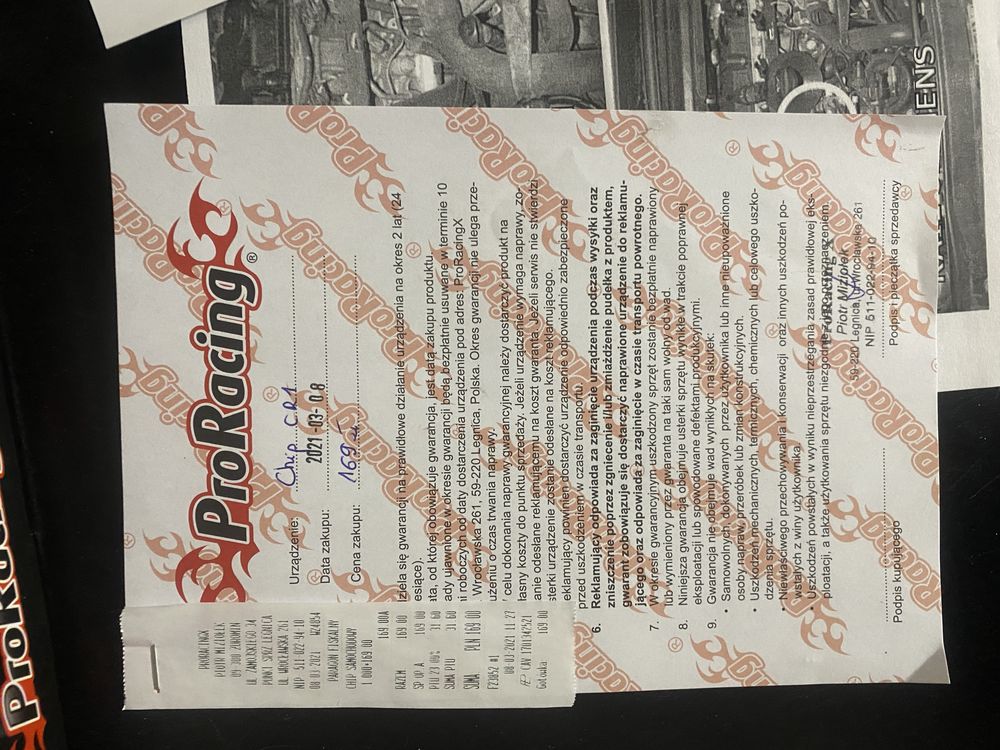 ProRacing®
Urządzenie: Chip CR1
Data zakupu: 2021-03-08
Cena zakupu: 169 zł
dziela się gwarancji na prawidłowe działanie urządzenia na okres 2 lat (24
esiące).
ata, od której obowiązuje gwarancja, jest datą zakupu produktu.
ady ujawnione w okresie gwarancji będą bezpłatnie usuwane w terminie 10
i roboczych od daty dostarczenia urządzenia pod adres: ProRacingX
Wrocławska 261, 59-220 Legnica, Polska. Okres gwarancji nie ulega prze-
użeniu o czas trwania naprawy.
celu dokonania naprawy gwarancyjnej należy dostarczyć produkt na
łasny koszty do punktu sprzedaży. Jeżeli urządzenie wymaga naprawy, zo-
anie odesłane reklamującemu na koszt gwaranta. Jeżeli serwis nie stwierdzi
sterki urządzenie zostanie odesłane na koszt reklamującego.
eklamujący powinien dostarczyć urządzenie odpowiednio zabezpieczone
przed uszkodzeniem w czasie transportu.
6. Reklamujący odpowiada za zaginięcie urządzenia podczas wysyłki oraz
zniszczenie poprzez zgniecenie i/lub zmiażdżenie pudełka z produktem,
gwarant zobowiązuje się dostarczyć naprawione urządzenie do reklamu-
jącego oraz odpowiada za zaginięcie w czasie transportu powrotnego.
7. W okresie gwarancyjnym uszkodzony sprzęt zostanie bezpłatnie naprawiony
lub wymieniony przez gwaranta na taki sam wolny od wad.
8. Niniejsza gwarancja obejmuje usterki sprzętu wynikłe w trakcie poprawnej
eksploatacji lub spowodowane defektami produkcyjnymi.
9. Gwarancja nie obejmuje wad wynikłych na skutek:
• Samowolnych, dokonywanych przez użytkownika lub inne nieupoważnione
osoby napraw, przeróbek lub zmian konstrukcyjnych.
• Uszkodzeń mechanicznych, termicznych, chemicznych lub celowego uszko-
dzenia sprzętu.
• Niewłaściwego przechowywania i konserwacji oraz innych uszkodzeń po-
wstałych z winy użytkownika.
• Uszkodzeń powstałych w wyniku nieprzestrzegania zasad prawidłowej eks-
ploatacji, a także użytkowania sprzętu niezgodnie z jego przeznaczeniem.
ProRacing X
Piotr Miziołek
59-220 Legnica, Wrocławska 261
NIP 511-022-94-10
Podpis kupującego
Podpis i pieczątka sprzedawcy
PRORACINGX
PIOTR MIZIOŁEK
09-300 ŻUROMIN
UL ZAMOJSKIEGO 34
PUNK SPRZ LEGNICA
UL WROCŁAWSKA 261
NIP 511-022-94-10
08-03-2021 W24054
PARAGON FISKALNY
CHIP SAMOCHODOWY
1.000×169.00 169.00A
RAZEM 169.00
SP OP A 169.00
PTU 23.00% 31.60
SUMA PTU 31.60
SUMA PLN 169.00
F23052 #1 08-03-2021 11:27
CAW 1701342521
Gotówka 169.00
ENS